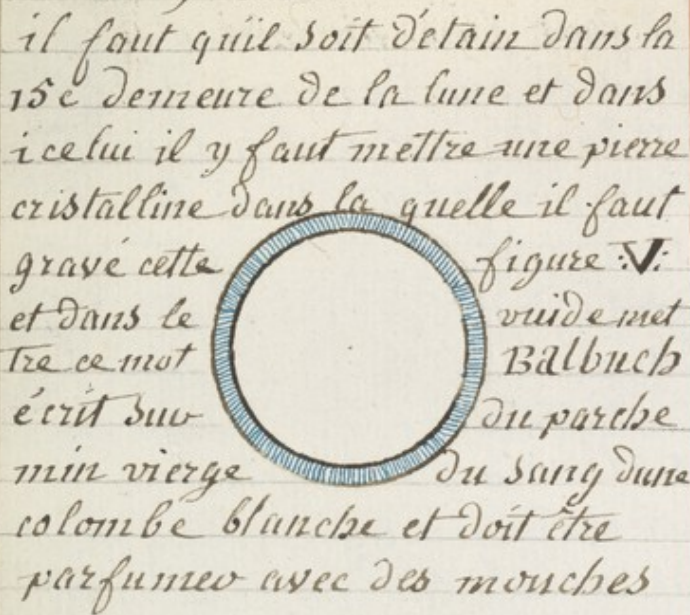 il faut quil soit d'etain dans la
15e demeure de la lune et dans
icelui il y faut mettre une pierre
cristalline dans la quelle il faut
gravé cette figure :V:
et dans le vuide met
tre ce mot Balbuch
écrit suv du parche
min vierge du sang dune
colombe blanche et doit être
parfumev avec des mouches